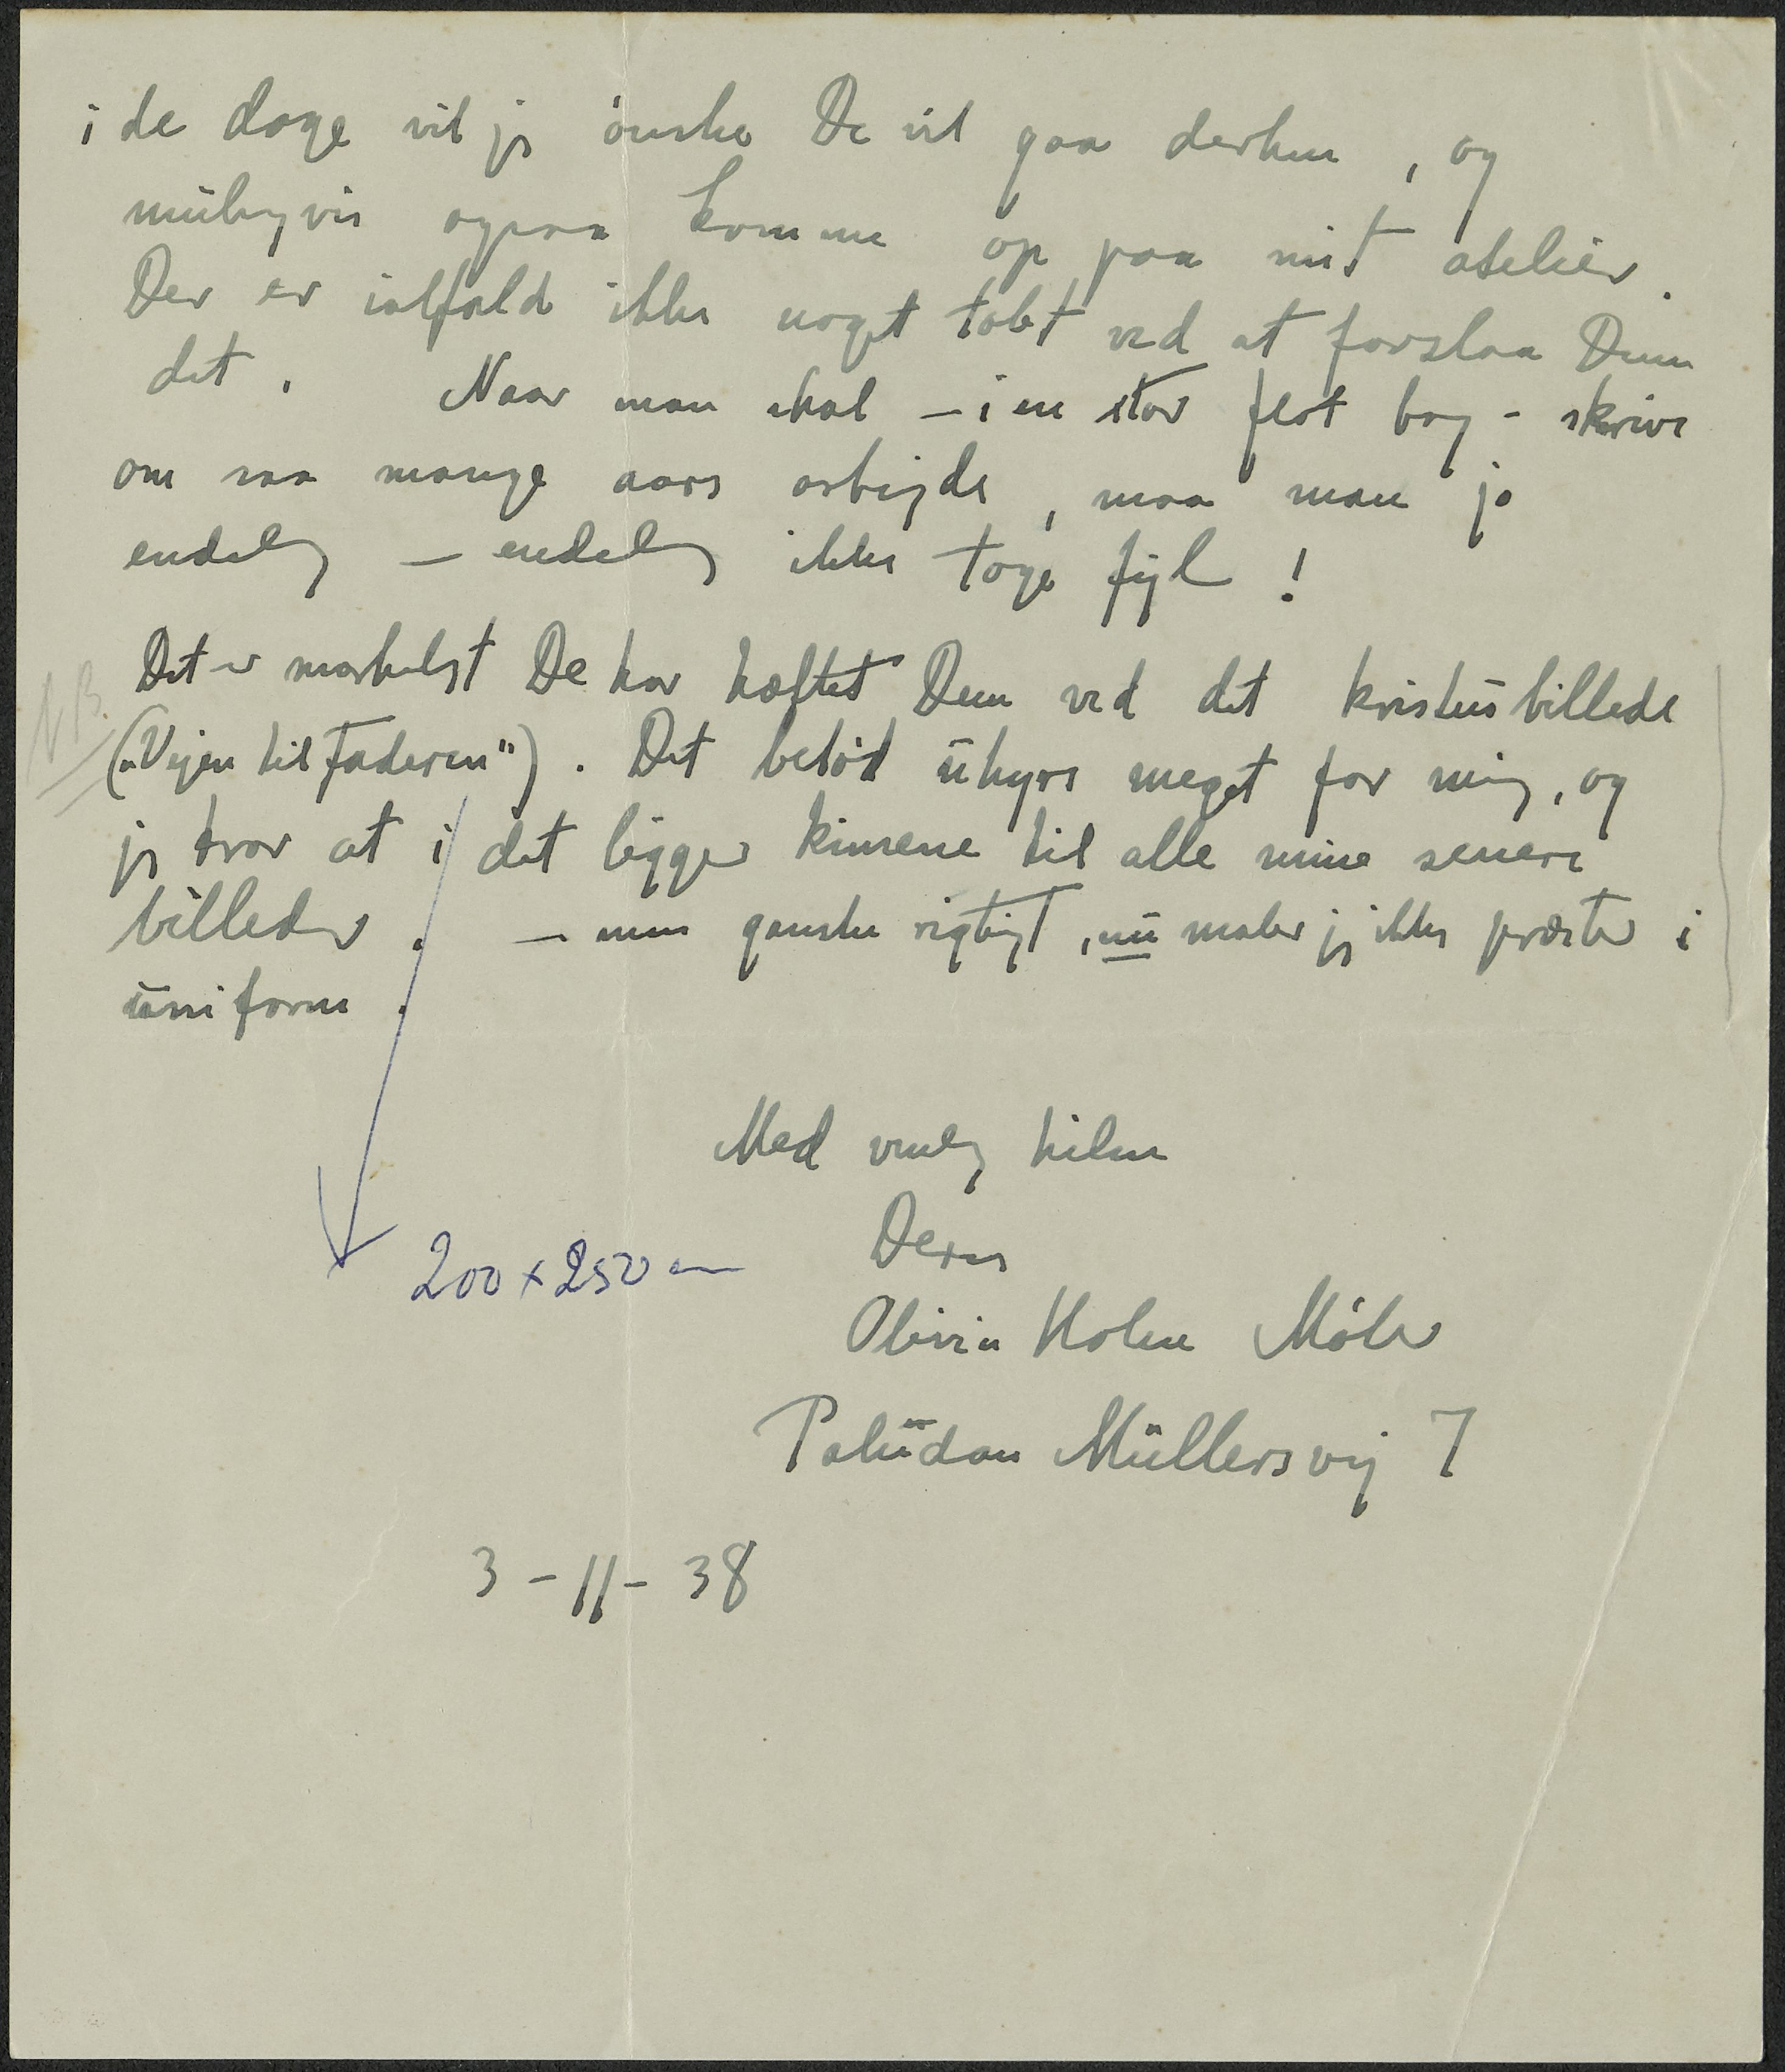 i de dage vil jeg ønske De vil gaa derhen, og
muligvis ogsaa komme op paa mit atelier.
Der er ialfald ikke noget tabt ved at foreslaa Dem
det. Naar man skal – i en stor flot bog – skrive
om saa mange aars arbejde, maa man jo
endelig – endelig ikke tage fejl!
NB.
Det er mærkeligt De har hæftet Dem ved det kristusbillede
("Vejen til Faderen"). Det betød uhyre meget for mig, og
jeg tror at i det ligger kimene til alle mine senere
billeder. – men ganske rigtigt, nu maler jeg ikke præster i
uniform.
Med venlig hilsen
Deres
200 x 250 cm
Olivia Holm Møller
Paludan Müllersvej 7
3-11-38